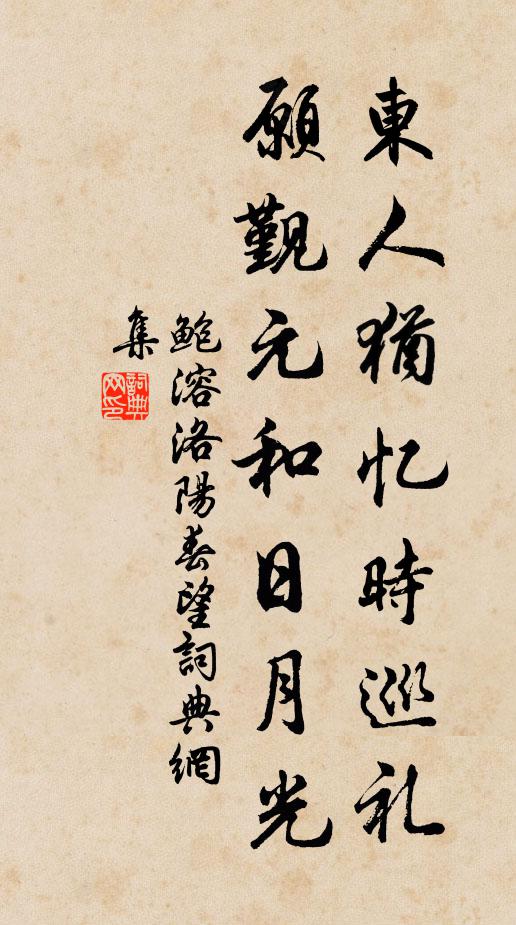 東人猶忆時巡礼
願觐元和日月光
鲍溶洛陽春望詞典網
集
詞典网印